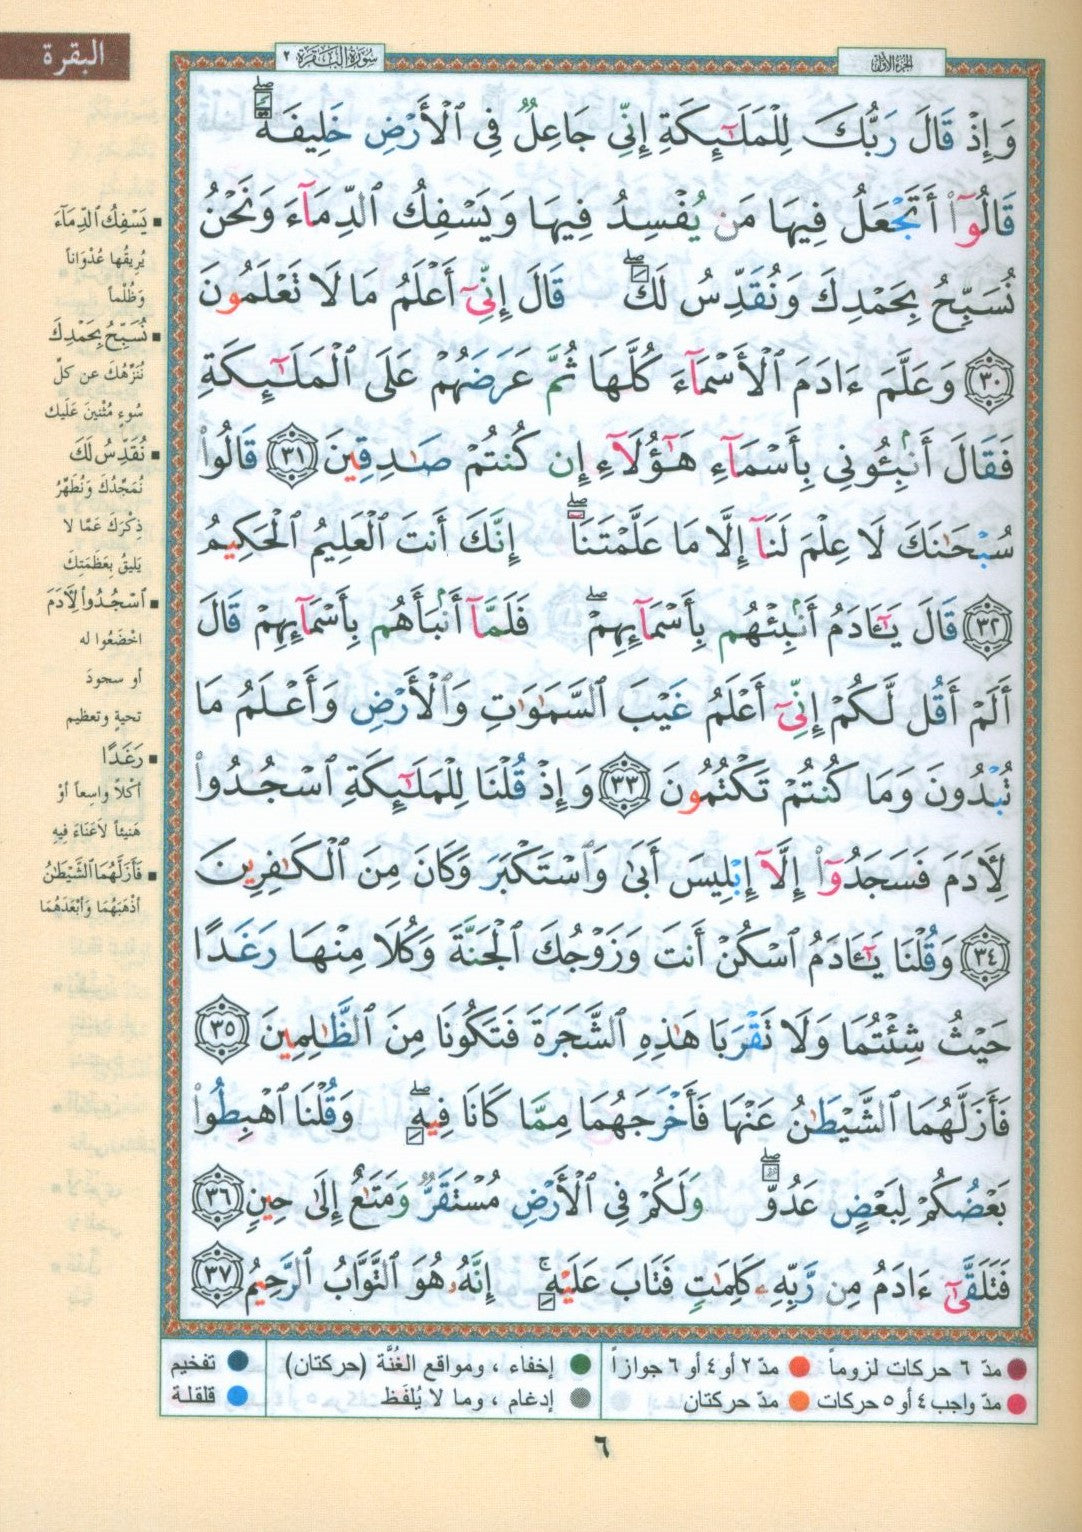 البقرة
سُورَةُ البَقَرَة ٢
الجزء الأول
وَإِذْ قَالَ رَبُّكَ لِلْمَلَٰٓئِكَةِ إِنِّى جَاعِلٌ فِى ٱلْأَرْضِ خَلِيفَةً ۖ
قَالُوٓا۟ أَتَجْعَلُ فِيهَا مَن يُفْسِدُ فِيهَا وَيَسْفِكُ ٱلدِّمَآءَ وَنَحْنُ
نُسَبِّحُ بِحَمْدِكَ وَنُقَدِّسُ لَكَ ۖ قَالَ إِنِّىٓ أَعْلَمُ مَا لَا تَعْلَمُونَ
٣٠ وَعَلَّمَ ءَادَمَ ٱلْأَسْمَآءَ كُلَّهَا ثُمَّ عَرَضَهُمْ عَلَى ٱلْمَلَٰٓئِكَةِ
فَقَالَ أَنۢبِـُٔونِى بِأَسْمَآءِ هَٰٓؤُلَآءِ إِن كُنتُمْ صَٰدِقِينَ ٣١ قَالُوا۟
سُبْحَٰنَكَ لَا عِلْمَ لَنَآ إِلَّا مَا عَلَّمْتَنَآ ۖ إِنَّكَ أَنتَ ٱلْعَلِيمُ ٱلْحَكِيمُ
٣٢ قَالَ يَٰٓـَٔادَمُ أَنۢبِئْهُم بِأَسْمَآئِهِمْ ۖ فَلَمَّآ أَنۢبَأَهُم بِأَسْمَآئِهِمْ قَالَ
أَلَمْ أَقُل لَّكُمْ إِنِّىٓ أَعْلَمُ غَيْبَ ٱلسَّمَٰوَٰتِ وَٱلْأَرْضِ وَأَعْلَمُ مَا
تُبْدُونَ وَمَا كُنتُمْ تَكْتُمُونَ ٣٣ وَإِذْ قُلْنَا لِلْمَلَٰٓئِكَةِ ٱسْجُدُوا۟
لِءَادَمَ فَسَجَدُوٓا۟ إِلَّآ إِبْلِيسَ أَبَىٰ وَٱسْتَكْبَرَ وَكَانَ مِنَ ٱلْكَٰفِرِينَ
٣٤ وَقُلْنَا يَٰٓـَٔادَمُ ٱسْكُنْ أَنتَ وَزَوْجُكَ ٱلْجَنَّةَ وَكُلَا مِنْهَا رَغَدًا
حَيْثُ شِئْتُمَا وَلَا تَقْرَبَا هَٰذِهِ ٱلشَّجَرَةَ فَتَكُونَا مِنَ ٱلظَّٰلِمِينَ ٣٥
فَأَزَلَّهُمَا ٱلشَّيْطَٰنُ عَنْهَا فَأَخْرَجَهُمَا مِمَّا كَانَا فِيهِ ۖ وَقُلْنَا ٱهْبِطُوا۟
بَعْضُكُمْ لِبَعْضٍ عَدُوٌّ ۖ وَلَكُمْ فِى ٱلْأَرْضِ مُسْتَقَرٌّ وَمَتَٰعٌ إِلَىٰ حِينٍ ٣٦
فَتَلَقَّىٰٓ ءَادَمُ مِن رَّبِّهِۦ كَلِمَٰتٍ فَتَابَ عَلَيْهِ ۚ إِنَّهُۥ هُوَ ٱلتَّوَّابُ ٱلرَّحِيمُ ٣٧
■ يَسْفِكُ ٱلدِّمَآءَ
يُرِيقُها عُدْوَاناً
وَظُلْماً
■ نُسَبِّحُ بِحَمْدِكَ
نُنَزِّهُكَ عن كلِّ
سُوءٍ مُثْنينَ عَلَيك
■ نُقَدِّسُ لَكَ
نُمَجِّدُكَ وَنُطَهِّرُ
ذِكْرَكَ عَمَّا لا
يَليقُ بِعَظَمَتِكَ
■ ٱسْجُدُوا۟ لِءَادَمَ
اخْضَعُوا له
أو سجودَ
تحيةٍ وتعظيم
■ رَغَدًا
أكْلاً واسِعاً أوْ
هَنيئاً لاَعَنَاءَ فِيهِ
■ فَأَزَلَّهُمَا ٱلشَّيْطَٰنُ
أذْهَبَهُمَا وَأبْعَدَهُمَا
مدّ ٦ حركات لزوماً
مدّ ٢ أو ٤ أو ٦ جوازاً
إخفاء ، ومواقع الغُنَّة (حركتان)
تفخيم
مدّ واجب ٤ أو ٥ حركات
مدّ حركتان
إدغام ، وما لا يُلفَظ
قلقلة
٦